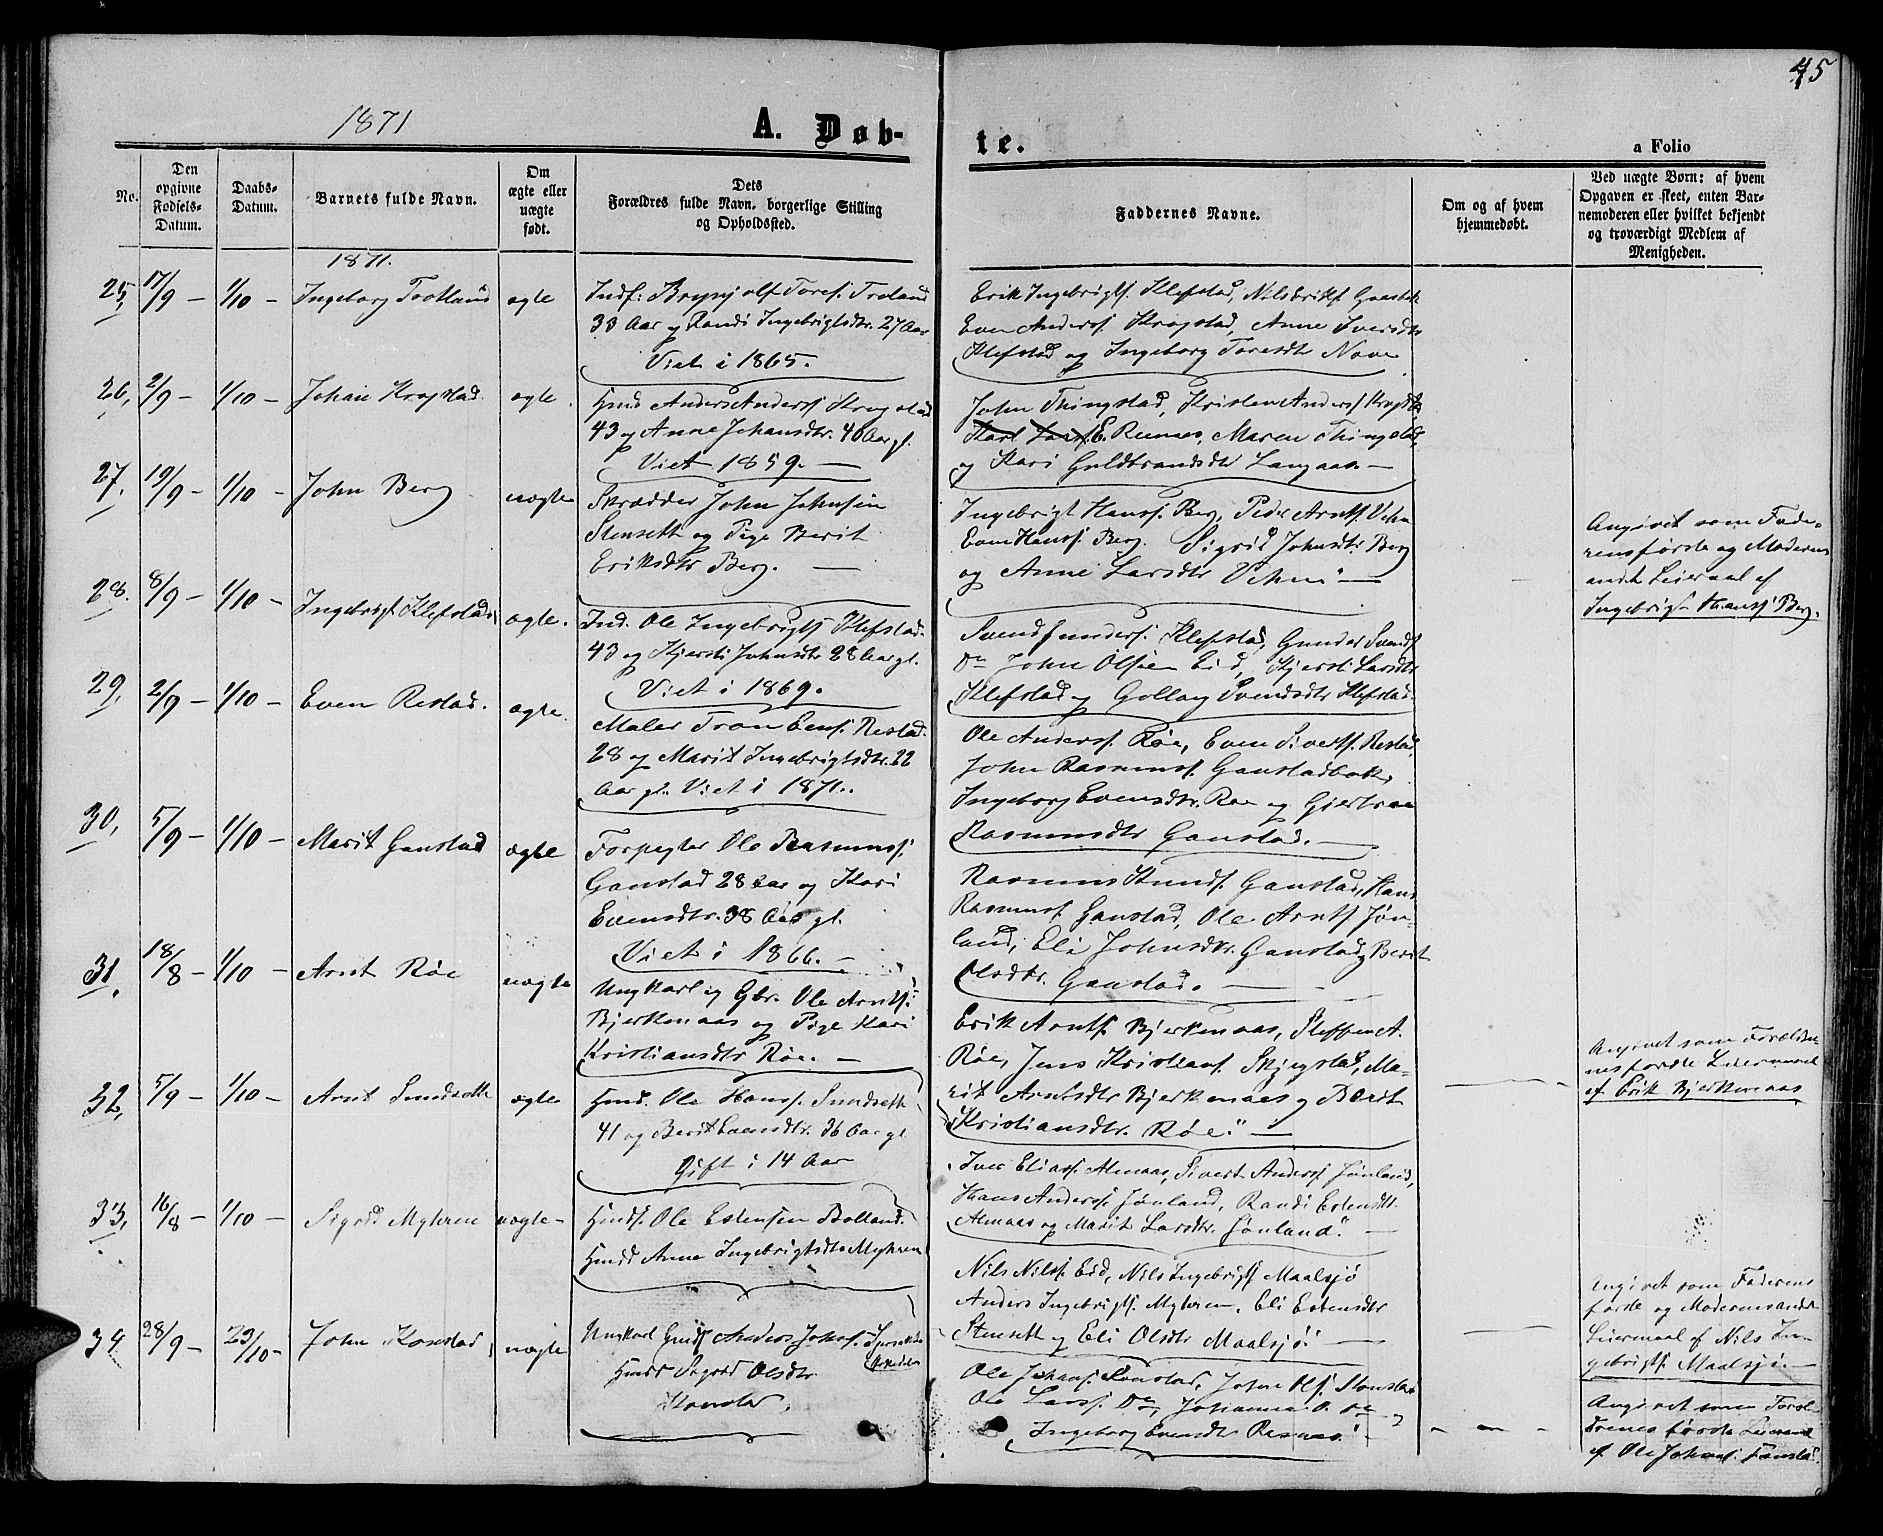 45
1871
A. Døb-
te.
a Folio
No.
Den opgivne Fødsels-Datum.
Daabs-Datum.
Barnets fulde Navn.
Om ægte eller uægte født.
Dets Forældres fulde Navn, borgerlige Stilling og Opholdssted.
Faddernes Navne.
Om og af hvem hjemmedøbt.
Ved uægte Børn: af hvem Opgaven er skeet, enten Barnemoderen eller hvilket bekjendt og troværdigt Medlem af Menigheden.
1871.
25, 17/9 – 1/10 – Ingeborg Trotland ægte
Indf: Brynjolf Tores. Troland
33 Aar og Randi Ingebrigtsdtr. 27 Aar
Viet i 1865.
Erik Ingebrigts. Klefstad, Nils Eriks. Gaasbak
Even Anderss. Krogstad, Anne Iversdtr
Klefstad og Ingeborg Toresdtr Nove
26, 2/9 – 1/10 – Johan Krogstad ægte.
Gmd Anders Anderss. Krogstad
43 og Anne Johansdtr. 40 Aar gl.
Viet 1859. –
John Thingstad, Kristen Anderss. Krogstd.
Karl Lars. E. Remes, Maren Thingstad,
og Kari Guldbrandsdtr Langaas. –
27. 19/9 – 1/10 – John Berg uægte
Skrædder John Johnsen
Stensett og Pige Berit
Eriksdtr Berg. –
Ingebrigt Hanss. Berg, Peder Arnts. Vehn
Even Hanss. Berg. Sigrid Johnsdtr Berg
og Anne Larsdtr Vehn" –
Angivet som Fade-
rens første og Moderens
andt Leiermaal af
Ingebrigt Hanss. Berg.
28. 8/9 – 1/10 – Ingebrigt Klefstad, ægte.
Ind. Ole Ingebrigts Klefstad.
43 og Kjersti Johnsdtr 28 Aar gl.
Viet i 1869.
Svend Gunders. Klefstad, Gunder Svends
Do John Olsen Eid, Kjersti Larsdtr
Klefstad og Gollaug Svendsdtr Klefstad.
29, 2/9 – 1/10 – Even Restad. ægte.
Maler Tron Evens. Restad.
28 og Marit Ingebrigtsdtr. 22
Aar gl. Viet i 1871..
Ole Anderss. Røe, Even Siverts. Restad,
John Rasmuss. Ganstadbak,
Ingeborg Evensdtr. Røe og Gjertrue
Rasmusdtr Ganstad. –
30, 5/9 – 1/10 – Marit Ganstad ægte
Forpagter Ole Rasmuss.
Ganstad 28 Aar og Kari
Evensdtr. 38 Aar gl.
Viet i 1866. –
Rasmus Knuds. Ganstad, Hans
Rasmuss. Ganstad, Ole Arnts. Jøn-
land, Eli Johnsdtr. Ganstad, Berit
Olsdtr. Ganstad. –
31. 18/8 – 1/10 – Arnt Røe uægte
Ungkarl ig Gbr. Ole Arnts.
Bjerkenaas og Pige Kari
Kristiansdtr Røe. –
Erik Arnts. Bjerkenaas, Steffen A.
Røe, Jens Kristians. Skjegstad, Ma-
rit Arntsdtr Bjerkenaas og Berit
Kristiansdtr. Røe." –
Angivet som Forældre
nes første Leiermaal
af Erik Bjerkenaas
32, 5/9 – 1/10 – Arnt Sundseth ægte
Gmd. Ole Hanss. Sundseth
41 og Berit Evensdtr. 36 Aar gl
Gift i 14 Aar
Iver Eliass. Almaas, Sivert Anderss. Jønland,
Hans Anderss. Jønland, Randi Estensdtr.
Almaas og Marit Larsdtr. Jønland." –
33, 16/8 – 1/10 – Sigrid Myhren uægte –
Gmdss. Ole Estensen Bolland.
Gmdd Anne Ingebrigtsdtr Myhren
Nils Nilss. Eid, Nils Ingebrigts. Maalsjø
Anders Ingebrigts. Myhren, Eli Estensdtr
Stensett og Eli Olsdtr Maalsjø." –
Angivet som Faderens
første og Moderens andet
Leiermaal af Nils In-
gebrigts. Maalsjø. –
34. 28/9 – 29/10 – John Konstad, uægte
Ungkarl Gmdss. Anders Johns.
Gmdd Sigrid Olsdtr
Konstad,
Ole Johans. Konstad, John Ols. Konstad
Ole Larss. Do, Johanna O. Do
Ingeborg Evensdtr Resnes." –
Angivet som Foræl-
drenes første Leierm
af Ole Johans. Fonstad